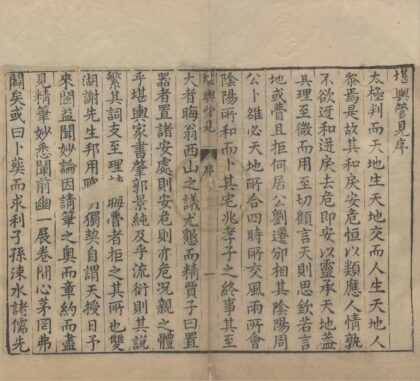 堪輿管見序
太極判而天地生天地交而人生天地人
叅焉是故其和戾安危恒以類應人情孰
不欲迓和迸戾去危即安以靈承天地葢
具理至微而用至切顧言天則思欽若言
地或瞢且拒何居公劉遷邠相其陰陽周
公卜雒必天地所合四時所交風雨所會
陰陽所和而卜其宅兆孝子之終事其至
堪輿管見 序 一
大者晦翁西山之議尤懇而精賈子曰置
器者置諸安處則安危則亦危况親之體
乎堪輿家書肇郭景純及乎流衍則其說
繁其詞支至理 晦瞢者拒之其所也雙
湖謝先生邦用 獨契自謂天授日予
來闗益聞妙論因請筆之奧而章約而盡
見精筆妙悉闡前幽一展卷間心茅罔弗
闢矣或曰卜葬而求利子孫涑水諸儒先